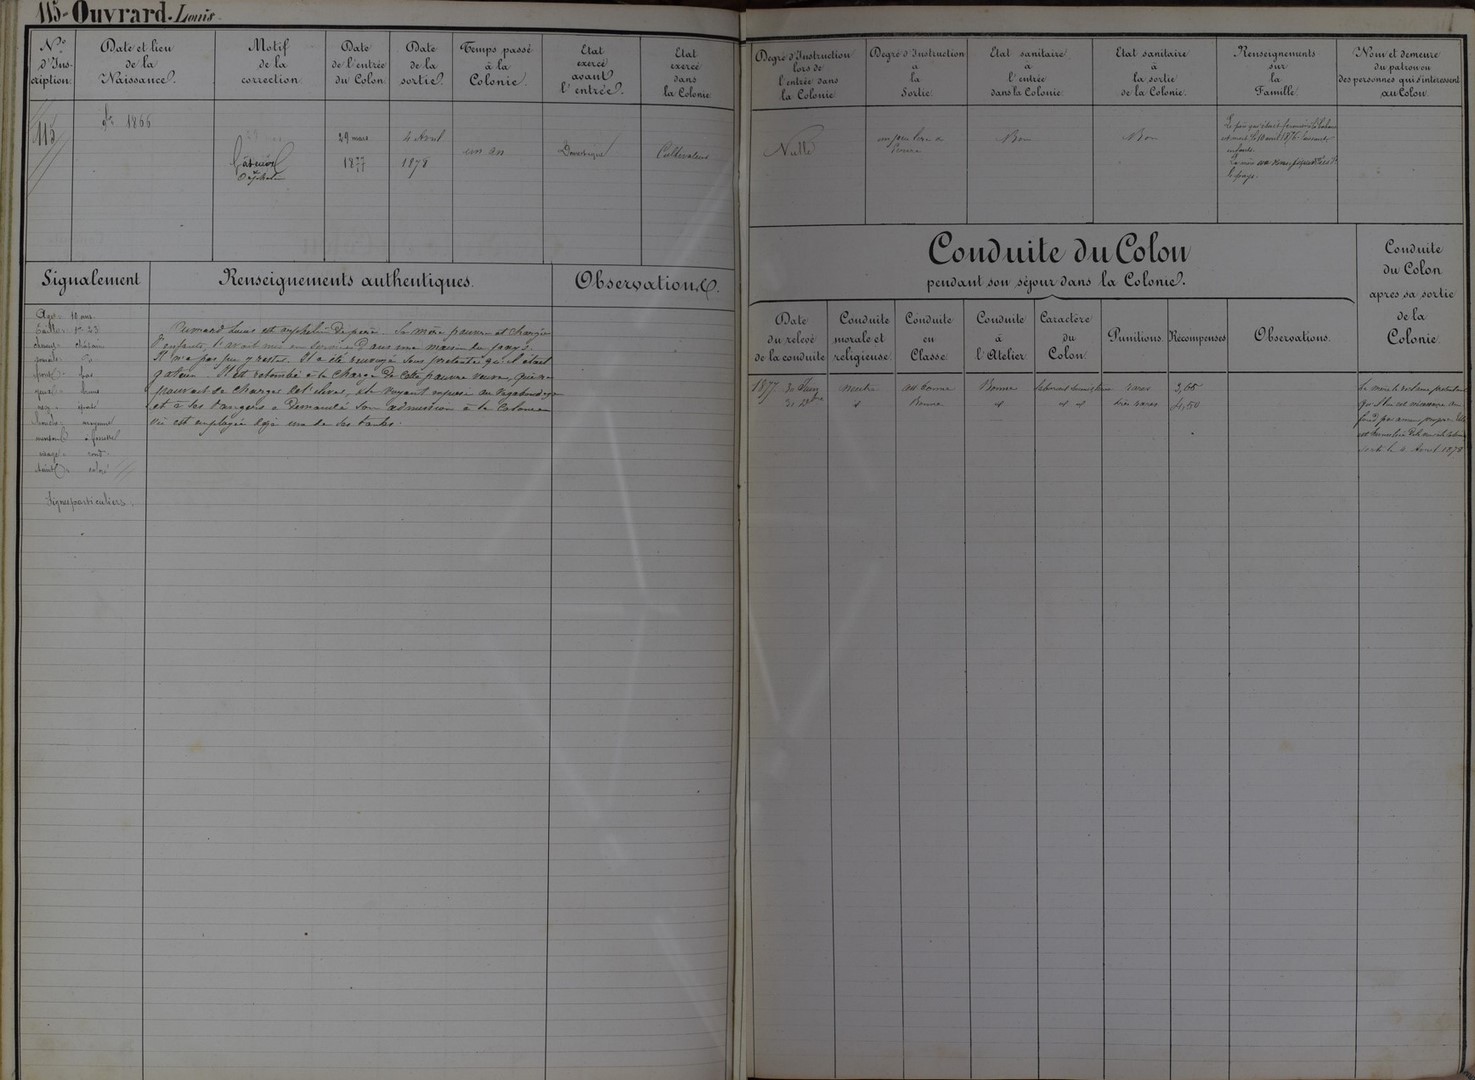 115-Ouvrard-Louis.
N.º d'Inscription.
Date et lieu de la Naissance.
Motif de la correction
Date de l'entrée du Colon
Date de la sortie.
Temps passé à la Colonie.
Etat exercé avant l'entrée.
Etat exercé dans la Colonie.
Degré d'Instruction lors de l'entrée dans la Colonie
Degré d'Instruction à la Sortie.
Etat sanitaire à l'entrée dans la Colonie.
Etat sanitaire à la sortie de la Colonie.
Renseignements sur la Famille.
Nom et demeure du patron ou des personnes qui s'intéressent au Colon.
115
1866
Orphelin
29 mars 1877
4 Avril 1878
un an
Domestique
Cultivateur
Nulle
un peu lire
Bon
Bon
Le père qui était
est mort le 10 août 1876 laissant
enfants.
La mère
le pays.
Signalement
Renseignements authentiques.
Observations.
Age = 10 ans.
Taille = 1m 23
visage = rond
Signes particuliers.
Ouvrard Louis est orphelin de père. Sa mère pauvre et chargée
d'enfants, l'avait mis en service dans une maison du pays.
Il n'a pas pu y rester. Il a été renvoyé sous prétexte qu'il était
gâteux. Il est retombé à la charge de cette pauvre veuve, qui ne
pouvait se charger de l'élever, le voyant exposé au vagabondage
et à ses dangers a demandé son admission à la Colonie
où est employée déjà une de ses tantes.
Conduite du Colon
pendant son séjour dans la Colonie.
Conduite du Colon après sa sortie de la Colonie.
Date du relevé de la conduite
Conduite morale et religieuse
Conduite en Classe.
Conduite à l'Atelier.
Caractère du Colon.
Punitions.
Récompenses
Observations.
1877. 30 Juin
assez bonne
Bonne
rares
2,65
31 Xbre
Bonne
très rares
4,50
sorti le 4 Avril 1878